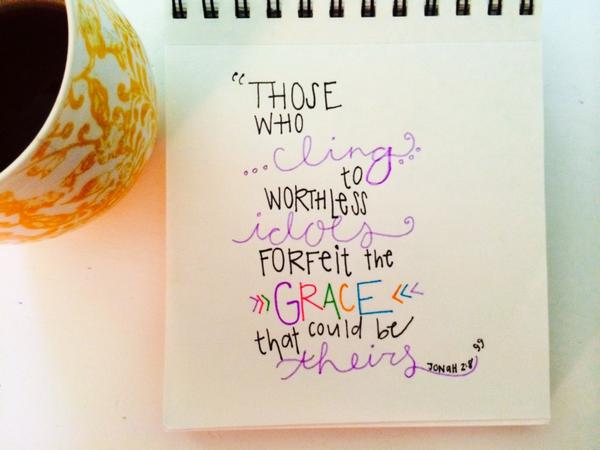 “THOSE
WHO
...cling...
to
WORTHLESS
idols
FORFEIT the
>>>GRACE<<<
that could be
theirs JONAH 2:8”